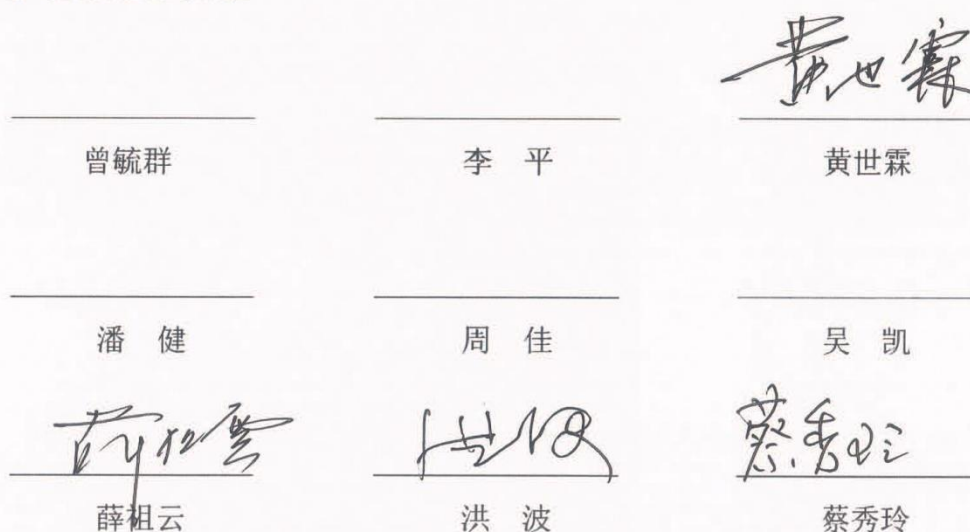 黄世霖
曾毓群 李 平 黄世霖
潘 健 周 佳 吴 凯
薛祖云 洪波 蔡秀玲
薛祖云 洪 波 蔡秀玲